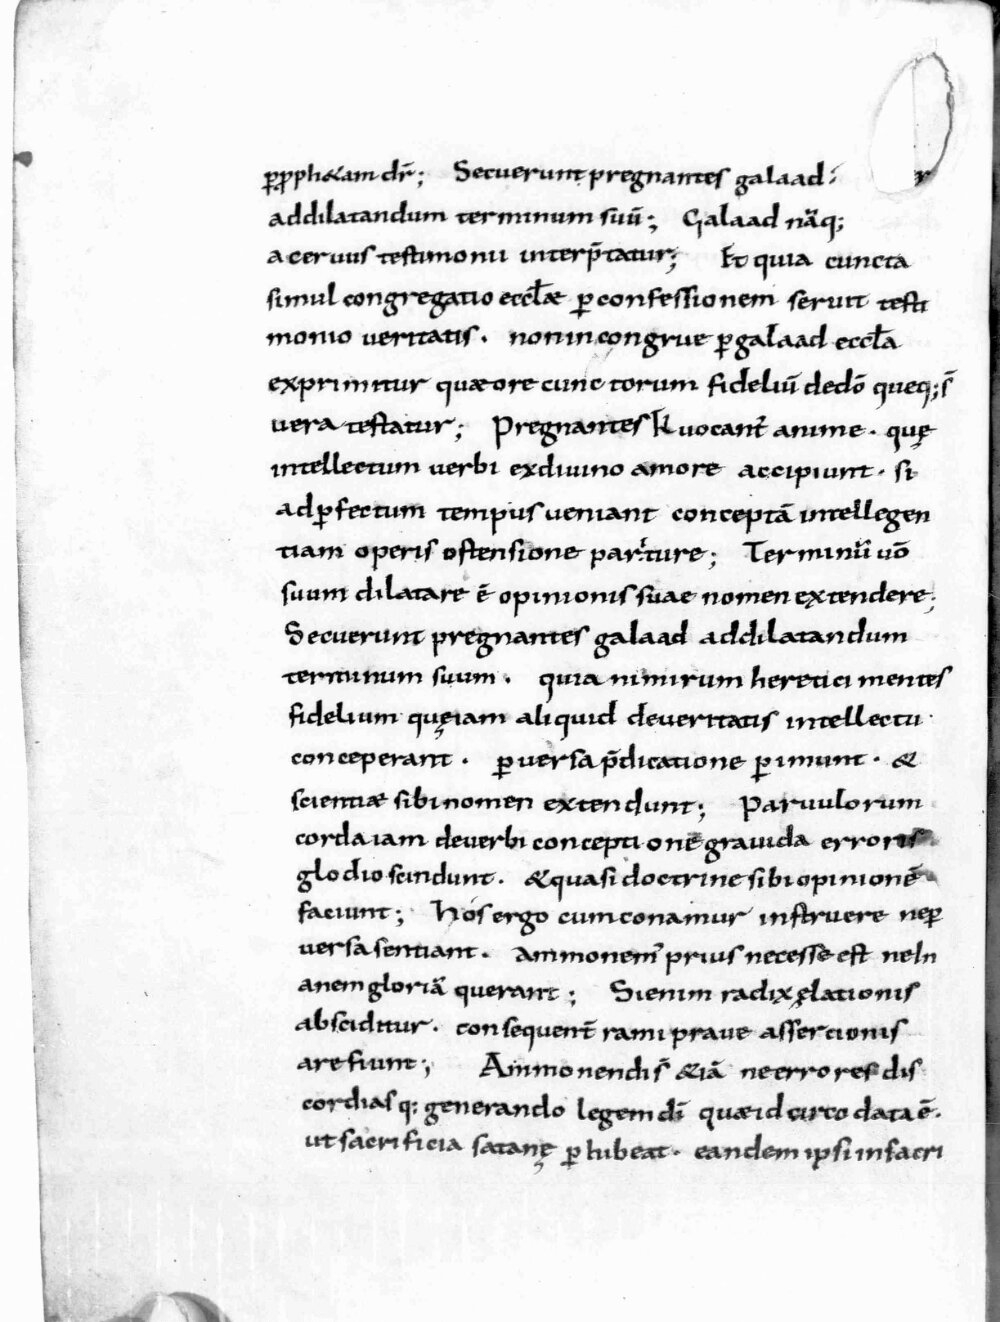 ꝑꝓph&am dr̄; Secuerunt pregnantes galaad
addilatandum terminum suū; Galaad nāq;
acervus testimonii interp̄tatur; Et quia cuncta
simul congregatio eccl̄æ ꝑconfessionem seruit testi
monio veritatis. nonincongrue ꝑgalaad eccl̄a
exprimitur quæore cunctorum fideliū dedō queq; s̄
vera testatur; Pregnantes vocant̄ anime. quę
intellectum verbi exdivino amore accipiunt. si
adꝑfectum tempus veniant conceptā intellegen
tiam operis ostensione pariture; Terminū vō
suum dilatare ē opinionis suae nomen extendere;
Secuerunt pregnantes galaad addilatandum
terminum suum. quia nimirum heretici mentes
fidelium quęiam aliquid deveritatis intellectu
conceperant. ꝑversa p̄dicatione ꝑimunt. &
scientiæ sibi nomen extendunt; Parvulorum
corda iam deverbi conceptione gravida erroris
glodio scindunt. &quasi doctrine sibi opinionē
faciunt; hos ergo cum conamur instruere neꝑ
versa sentiant. ammonem̄ prius necesse est neIn
anem gloriā querant; Si enim radix ęlationis
absciditur. consequent̄ rami prave assercionis
arefiunt; Ammonendi s̄ &iā ne errores dis
cordiasq; generando legem dī quæ idcirco data ē.
ut sacrificia satanę ꝑhibeat. eandem ipsi in sacri